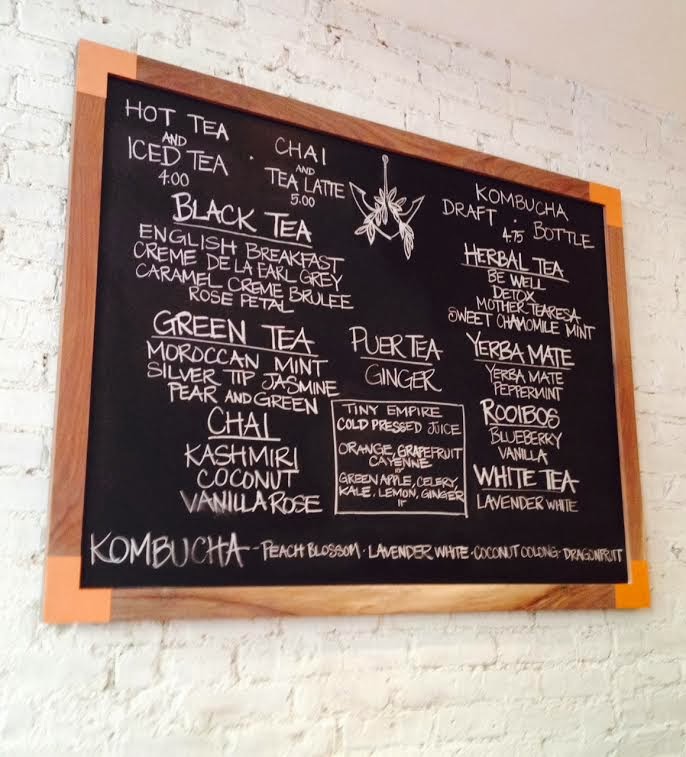 HOT TEA
AND
ICED TEA
4.00
CHAI
AND
TEA LATTE
5.00
KOMBUCHA
DRAFT · BOTTLE
4.75
BLACK TEA
ENGLISH BREAKFAST
CREME DE LA EARL GREY
CARAMEL CREME BRULEE
ROSE PETAL
GREEN TEA
MOROCCAN MINT
SILVER TIP JASMINE
PEAR AND GREEN
CHAI
KASHMIRI
COCONUT
VANILLA ROSE
PUER TEA
GINGER
TINY EMPIRE
COLD PRESSED JUICE
ORANGE, GRAPEFRUIT
CAYENNE
GREEN APPLE, CELERY,
KALE, LEMON, GINGER
HERBAL TEA
BE WELL
DETOX
MOTHER TEARESA
SWEET CHAMOMILE MINT
YERBA MATE
YERBA MATE
PEPPERMINT
ROOIBOS
BLUEBERRY
VANILLA
WHITE TEA
LAVENDER WHITE
KOMBUCHA - PEACH BLOSSOM · LAVENDER WHITE · COCONUT OOLONG · DRAGONFRUIT